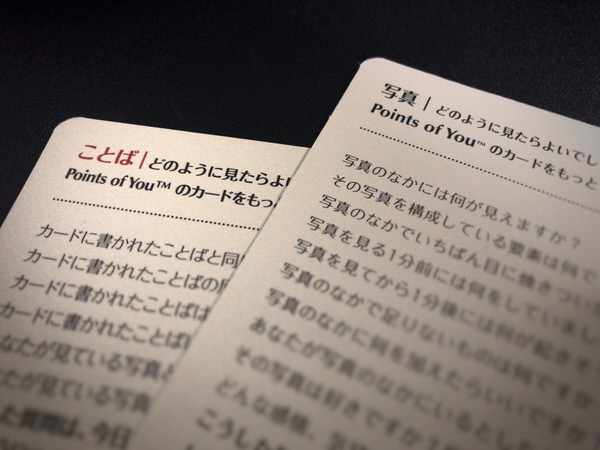 ことば | どのように見たらよい
Points of You™ のカードをもっ
カードに書かれたことばと同
カードに書かれたことばの
カードに書かれたことばは
なたが見ている写真
たが見ている写真
た質問は、今日
写真 | どのように見たらよいでし
Points of You™ のカードをもっと
写真のなかには何が見えますか?
その写真を構成している要素は何で
写真のなかでいちばん目に焼きつい
写真を見る1分前には何をしていまし
写真を見てから1分後には何が起きそ
写真のなかで足りないものは何ですか
写真のなかに何を加えたらいいですか
あなたが写真のなかにいるとした
その写真は好きですか?
どんな感情、気
こうした